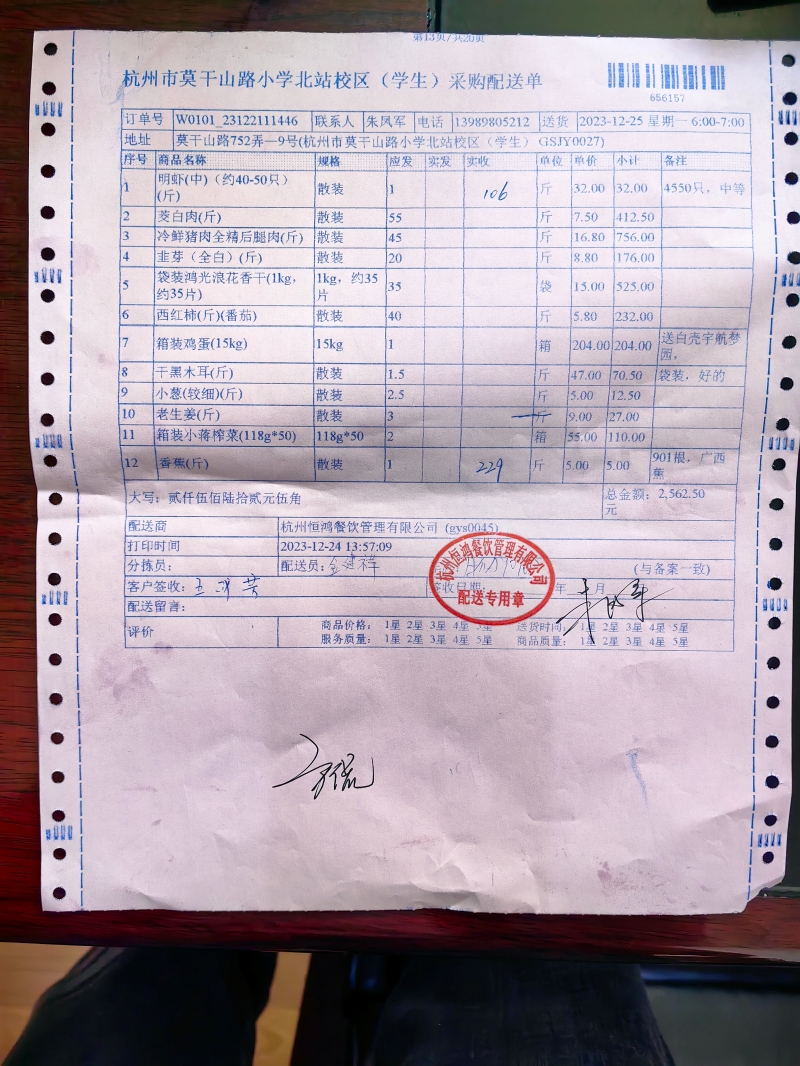 第13页/共20页
杭州市莫干山路小学北站校区（学生）采购配送单
656157
订单号 W0101_23122111446 联系人 朱凤军 电话 13989805212 送货 2023-12-25 星期一 6:00-7:00
地址 莫干山路752弄一9号(杭州市莫干山路小学北站校区（学生） GSJY0027)
序号 商品名称 规格 应发 实发 实收 单位 单价 小计 备注
1 明虾(中)（约40-50只）(斤) 散装 1 106 斤 32.00 32.00 4550只，中等
2 茭白肉(斤) 散装 55 斤 7.50 412.50
3 冷鲜猪肉全精后腿肉(斤) 散装 45 斤 16.80 756.00
4 韭芽（全白）(斤) 散装 20 斤 8.80 176.00
5 袋装鸿光浪花香干(1kg，约35片) 1kg，约35片 35 袋 15.00 525.00
6 西红柿(斤)(番茄) 散装 40 斤 5.80 232.00
7 箱装鸡蛋(15kg) 15kg 1 箱 204.00 204.00 送白壳宇航梦园，
8 干黑木耳(斤) 散装 1.5 斤 47.00 70.50 袋装，好的
9 小葱(较细)(斤) 散装 2.5 斤 5.00 12.50
10 老生姜(斤) 散装 3 斤 9.00 27.00
11 箱装小蒋榨菜(118g*50) 118g*50 2 箱 55.00 110.00
12 香蕉(斤) 散装 1 229 斤 5.00 5.00 901根，广西蕉
大写：贰仟伍佰陆拾贰元伍角 总金额：2,562.50元
配送商 杭州恒鸿餐饮管理有限公司 (gys0045)
打印时间 2023-12-24 13:57:09
分拣员： 配送员：金建祥 (与备案一致)
客户签收： 签收日期： 年 月
杭州恒鸿餐饮管理有限公司
配送专用章
朱凤军
配送留言：
评价 商品价格： 1星 2星 3星 4星 5星 送货时间： 1星 2星 3星 4星 5星
服务质量： 1星 2星 3星 4星 5星 商品质量： 1星 2星 3星 4星 5星